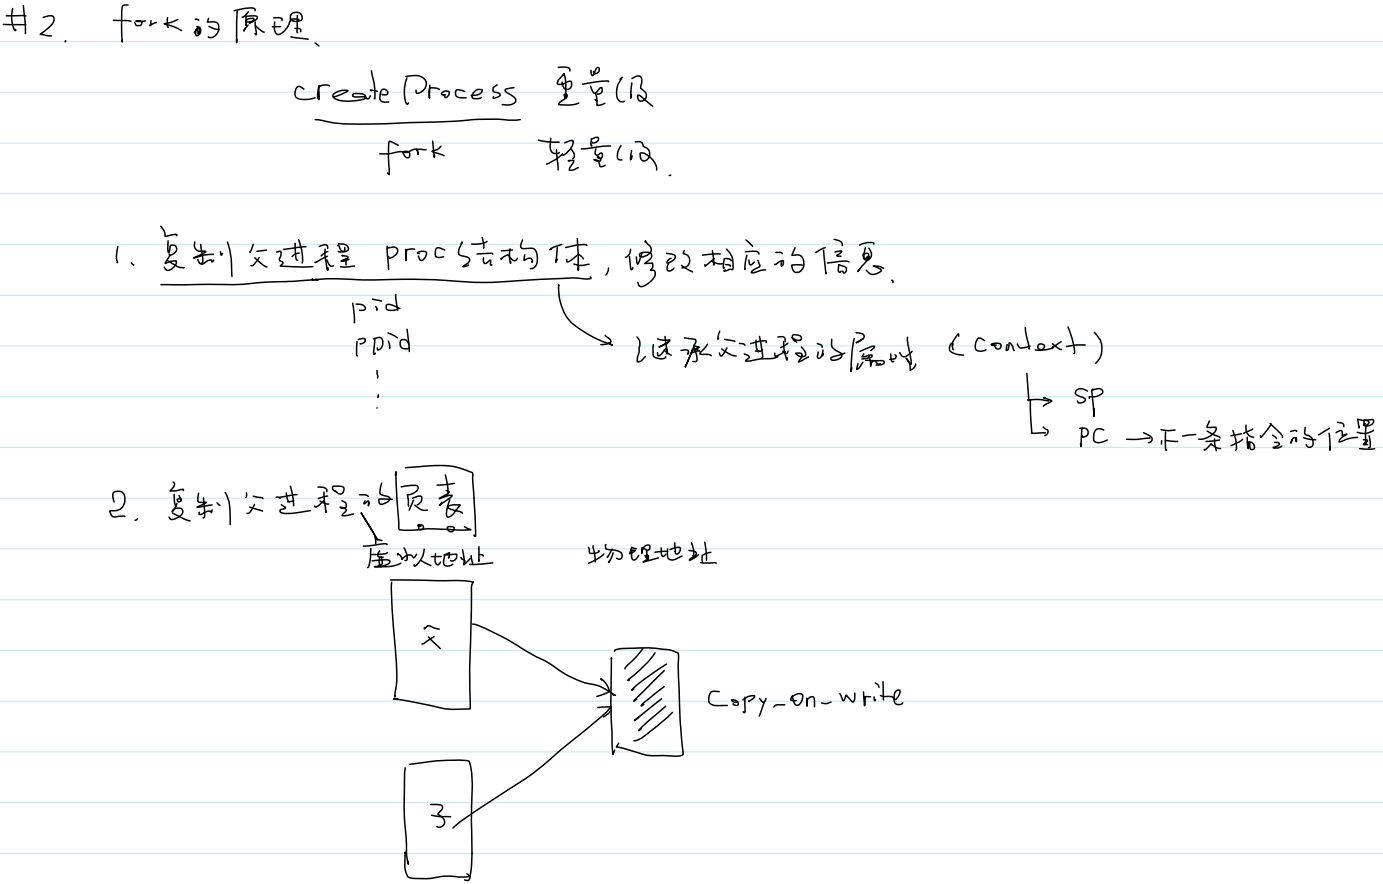 #2. fork的原理、
createProcess 重量级
fork 轻量级.
1. 复制父进程 proc结构体, 修改相应的信息.
pid
ppid
继承父进程的属性 (context)
SP
PC → 下一条指令的位置
2. 复制父进程的页表
虚拟地址 物理地址
父
copy_on_write
子